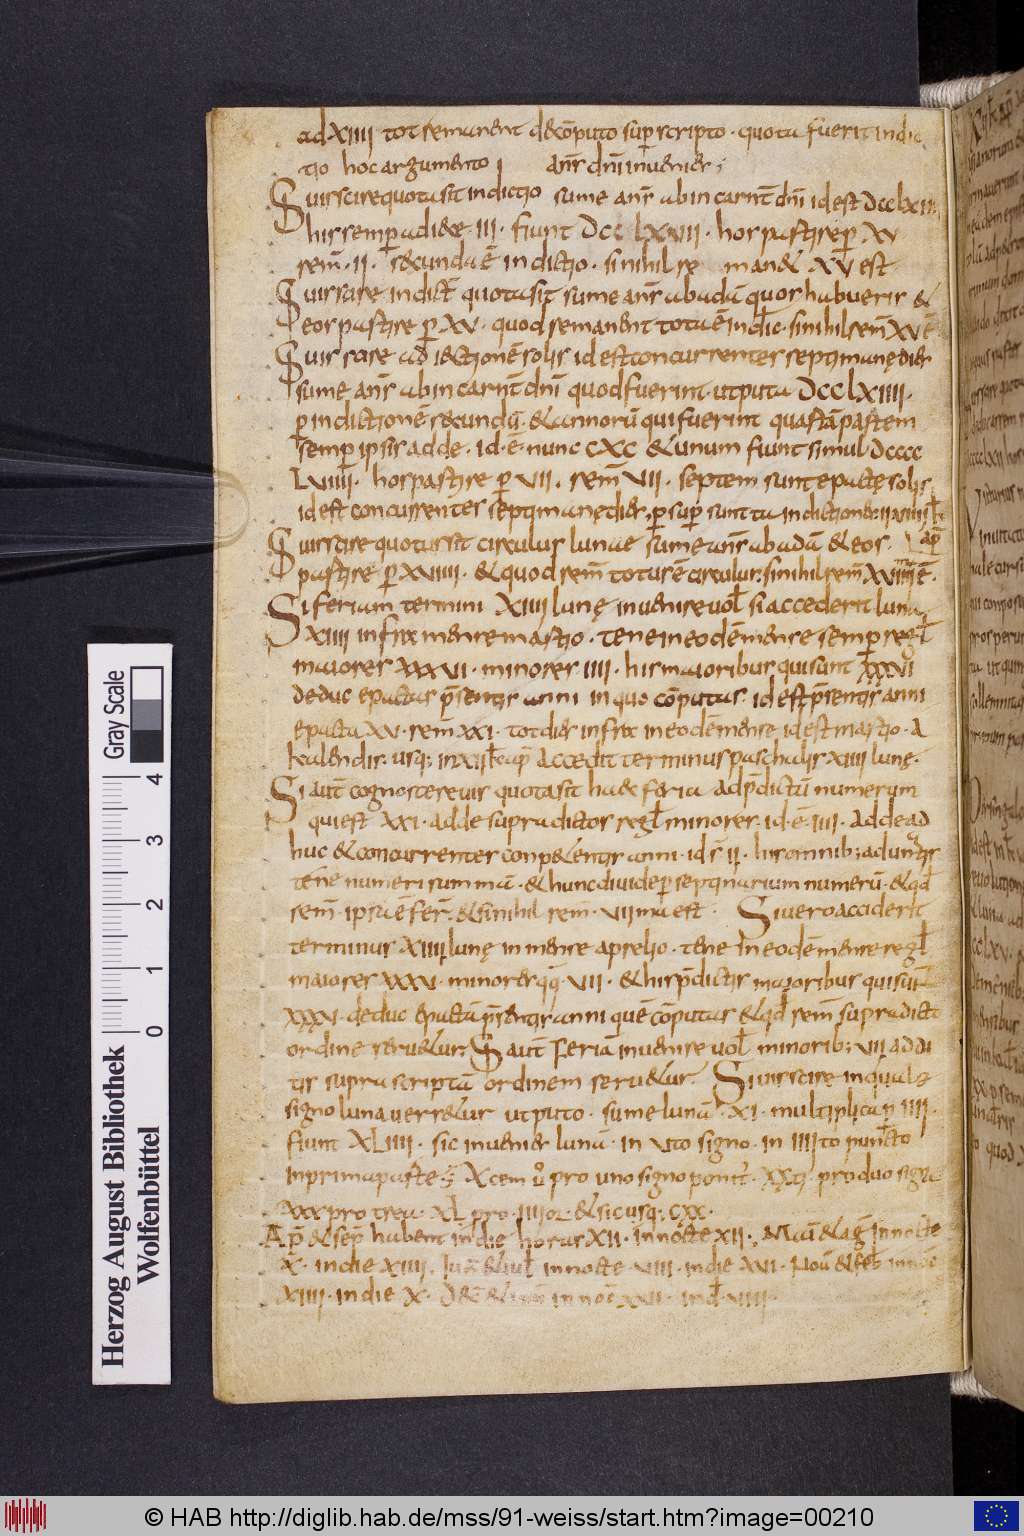 ad XIIII tot remanent de cōputo sup scripto · quota fuerit indic
tio hoc argumento annꝭ dn̄i inuenies ;
Si uis scire quota sit indictio sume annꝭ ab incarnt̄ dn̄i id est DCCLXIIII
his semp̄ adice · III · fiunt DCCLXVII · hos partire p̱ XV
rem̄ · II · secunda ē indictio · si nihil re manet XV est
Si uis scire indict̄ quota sit sume annꝭ ab adā quos habueris &
eos partire p̱ XV · quod remanent tota ē indic̄ · si nihil rem̄ XV ē
Si uis scire adiectionē solis id est concurrentes septimanę dies
sume annꝭ ab incarnt̄ dn̄i quod fuerint · ut puta DCCLXIIII ·
p̱ indictionē secundā · & annorū qui fuerint quartā partem
semp̄ ipsis adde · id · ē · nunc CXC & unum fiunt simul DCCCC
LVIIII · hos partire p̱ VII · rem̄ VII · septem sunt epacte solis
id est concurrentes septimanę dies
Si uis scire quotus sit circulus lunae sume annꝭ ab adā & eos ·
partire p̱ XVIIII · & quod rem̄ totus ē circulus · si nihil rem̄ XVIIII ē ·
Si feriam termini XIIII lunę inuenire uol̄ si accederit luna
XIIII infra mense martio · tene in eodē mense semp̄ regl̄
maiores XXXVI · minores IIII · his maioribus qui sunt XXXVI
deduc epactas p̄sentis anni in quo cōputas · id est p̄sentis anni
epacta XV · rem̄ XXI · tot dies infra in eodē mense id est martio · a
kalendis · usq; in XII kl̄ ap̄ accedit terminus paschalis XIIII lunę ·
Si aut̄ cognoscere uis quota sit haec feria ad p̄dictū numerum
qui est XXI · adde supradictos regl̄ minores · id · ē · IIII · adde ad
huc & concurrentes conpetentis anni · id ē II · his omnib; adunatis
tene numeri summā · & hunc diuide p̱ septinarium numerū · & qd̄
rem̄ · ipsa ē fer̄ · & si nihil rem̄ · VII ma est · Si uero acciderit
terminus · XIIII lunę in mense aprelio · tene in eodē mense regl̄
maiores XXXV · minores q̄q̄ · VII · & his p̄dictis maioribus qui sūt
XXXV · deduc epactā p̄sentis anni quē cōputas & qd̄ rem̄ supradicto
ordine seruetur · Si aut̄ feriā inuenire uol̄ minorib; VII addi
tis suprascriptā ordinem seruetur · Si uis scire in quale
signo luna uersetur ut puto · sume lunā · XI · multiplica p̱ IIII ·
fiunt XLIIII · sic inuenies lunā · in Vto signo · in IIII to puncto
in prima parte ; X cem ū pro uno signo ponit̄ · XX ti pro duo signa
XXX pro trea · XL pro · IIII or · & sic usq; CXX ·
Ap̄ & sep̄ habent in die horas XII · in nocte XII · Mai & ag̅ in nocte
X · in die XIIII · Iun̄ & iul̄ in nocte · VIII · in die XVI · Nou̅ & feb̄ in noc̄
XIIII · in die X · Dec̄ & in noc̄ XVI · in d̄ · VIII ·
Gray Scale
0 1 2 3 4
Herzog August Bibliothek
Wolfenbüttel
© HAB http://diglib.hab.de/mss/91-weiss/start.htm?image=00210